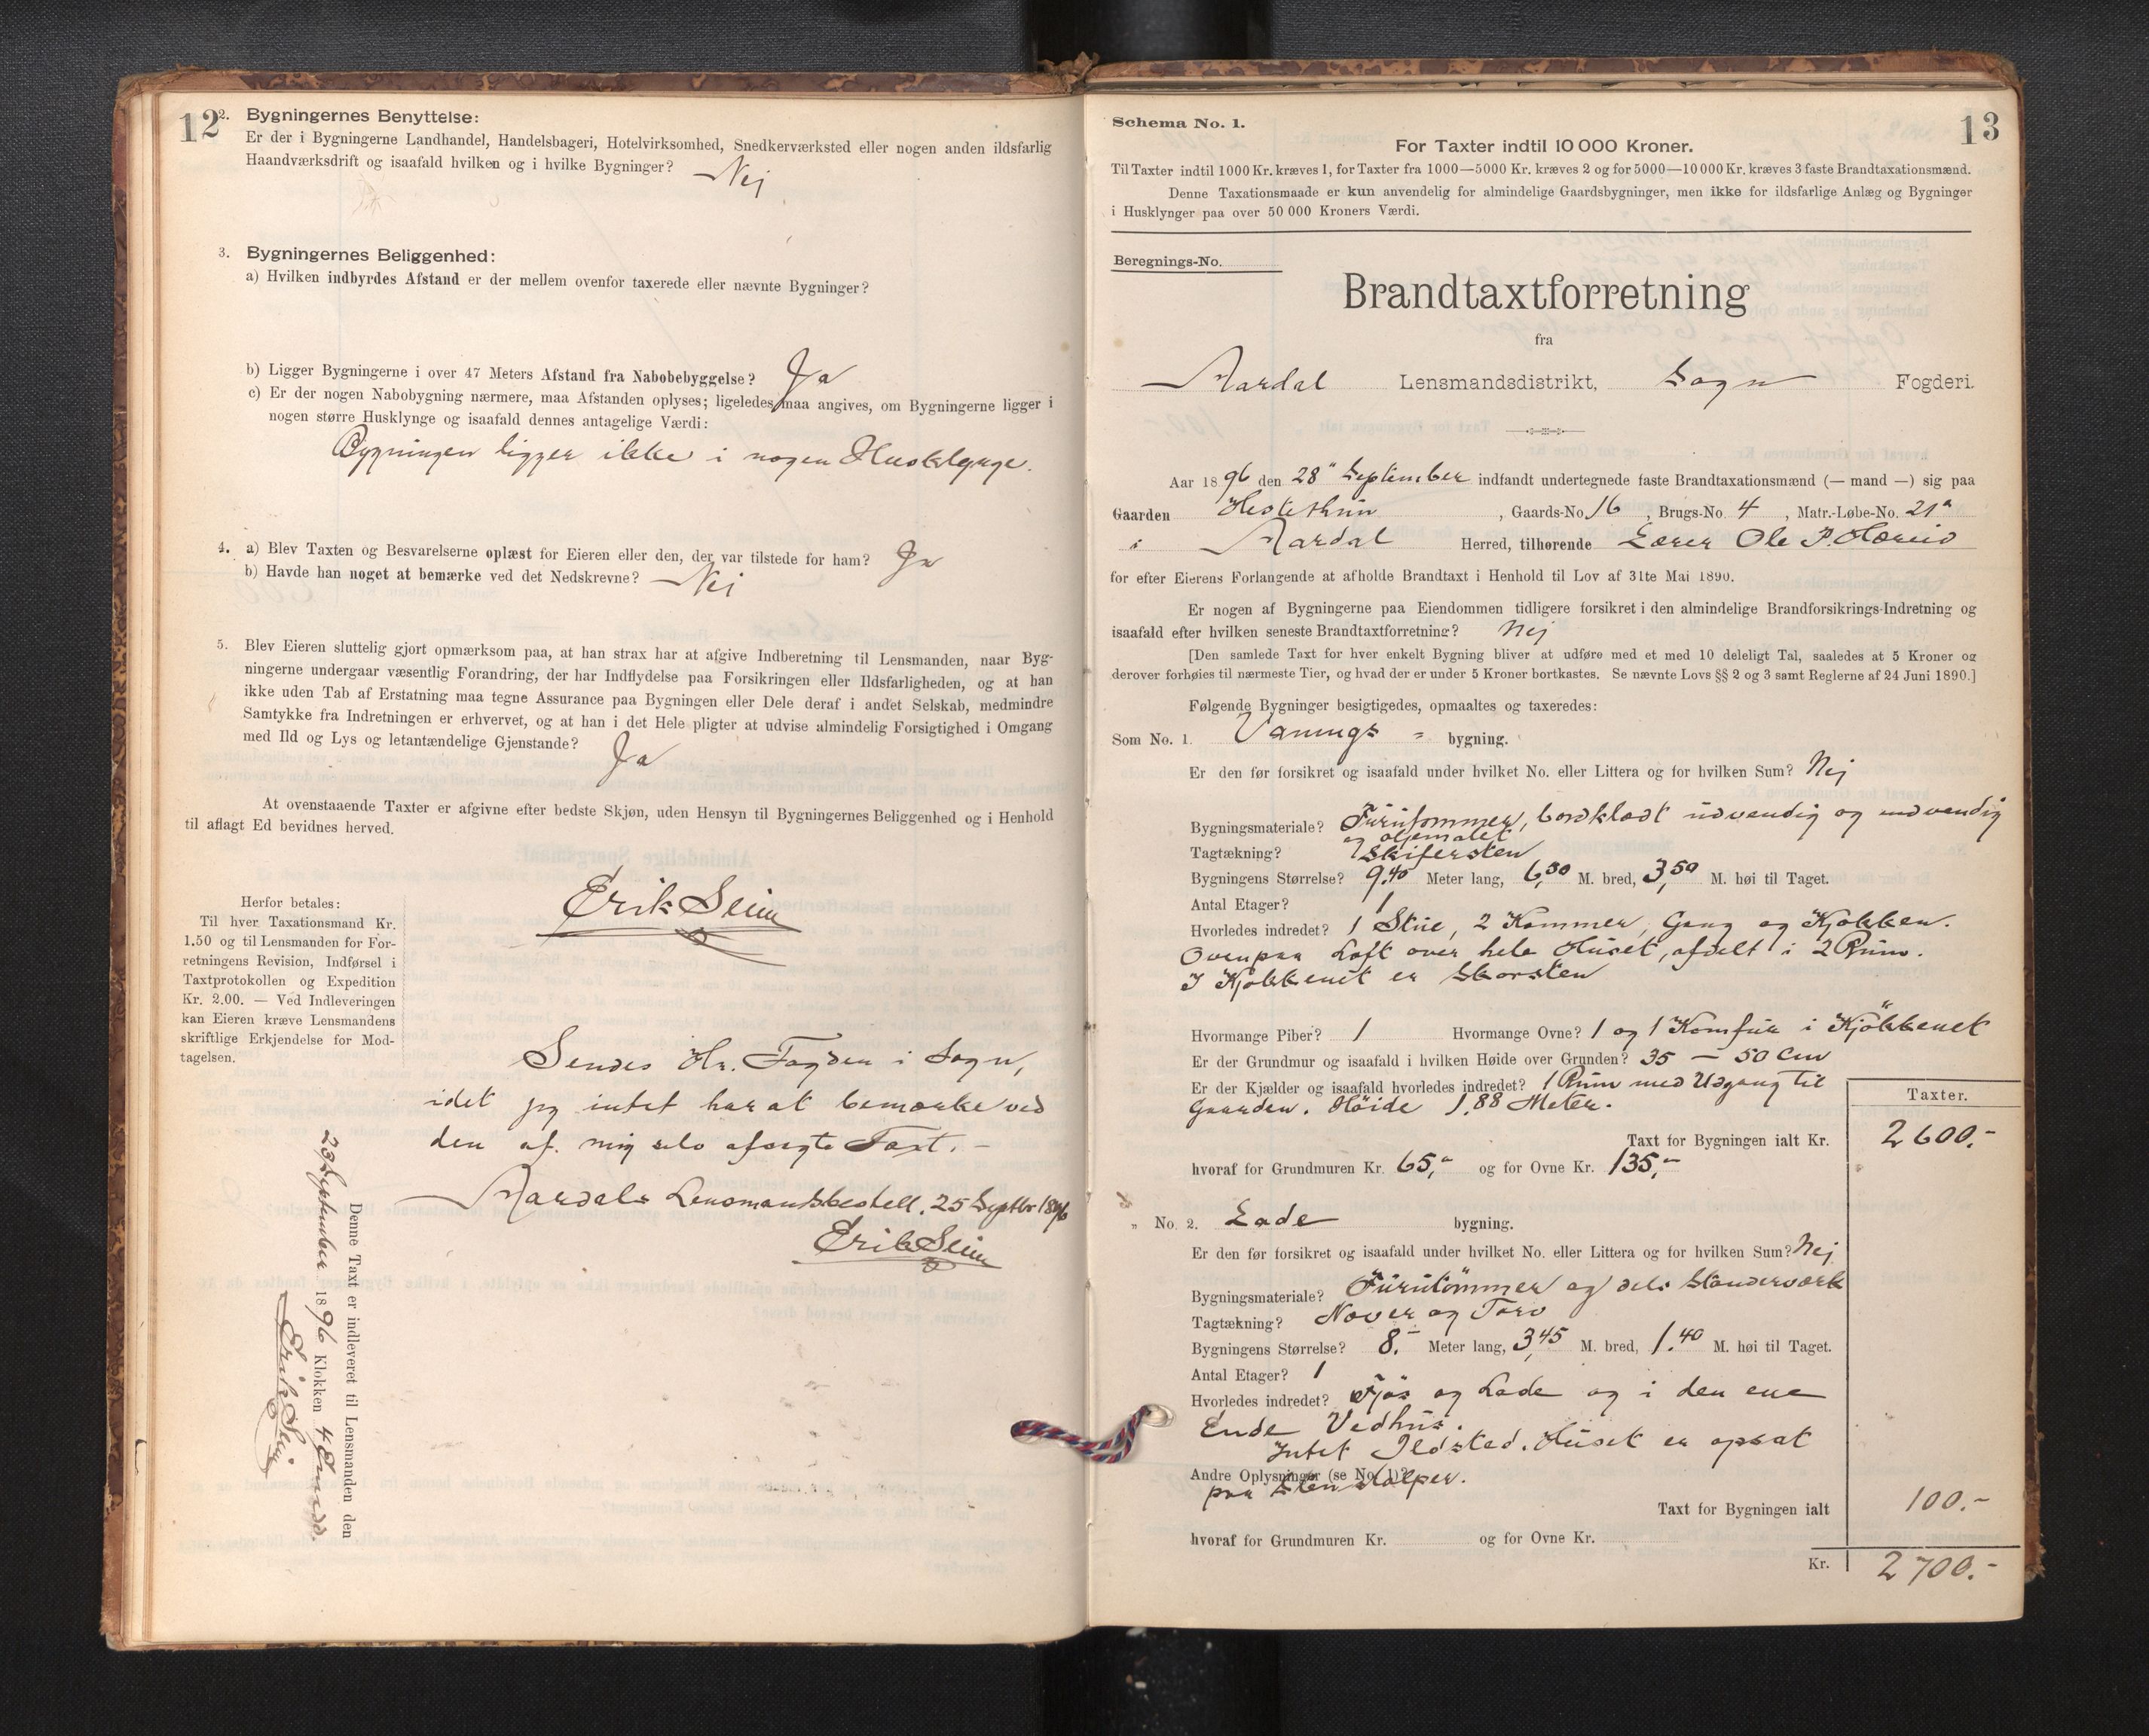 12
2. Bygningernes Benyttelse:
Er der i Bygningerne Landhandel, Handelsbageri, Hotelvirksomhed, Snedkerværksted eller nogen anden ildsfarlig
Haandværksdrift og isaafald hvilken og i hvilke Bygninger? Nej
3. Bygningernes Beliggenhed:
a) Hvilken indbyrdes Afstand er der mellem ovenfor taxerede eller nævnte Bygninger?
b) Ligger Bygningerne i over 47 Meters Afstand fra Nabobebyggelse? Ja
c) Er der nogen Nabobygning nærmere, maa Afstanden oplyses; ligeledes maa angives, om Bygningerne ligger i
nogen større Husklynge og isaafald dennes antagelige Værdi:
Bygningen ligger ikke i nogen Husklynge.
4. a) Blev Taxten og Besvarelserne oplæst for Eieren eller den, der var tilstede for ham? Ja
b) Havde han noget at bemærke ved det Nedskrevne? Nei
5. Blev Eieren sluttelig gjort opmærksom paa, at han strax har at afgive Indberetning til Lensmanden, naar Byg-
ningerne undergaar væsentlig Forandring, der har Indflydelse paa Forsikringen eller Ildsfarligheden, og at han
ikke uden Tab af Erstatning maa tegne Assurance paa Bygningen eller Dele deraf i andet Selskab, medmindre
Samtykke fra Indretningen er erhvervet, og at han i det Hele pligter at udvise almindelig Forsigtighed i Omgang
med Ild og Lys og letantændelige Gjenstande? Ja
At ovenstaaende Taxter er afgivne efter bedste Skjøn, uden Hensyn til Bygningernes Beliggenhed og i Henhold
til aflagt Ed bevidnes herved.
Erik Seim
Herfor betales:
Til hver Taxationsmand Kr.
1.50 og til Lensmanden for For-
retningens Revision, Indførsel i
Taxtprotokollen og Expedition
Kr. 2.00. — Ved Indleveringen
kan Eieren kræve Lensmandens
skriftlige Erkjendelse for Mod-
tagelsen.
Sendes Hr. Fogden i Sogn,
idet jeg intet har at bemærke ved
den af mig selv afsagte Taxt. -
Aardals Lensmandsbestell. 25 Septbr 1896
Erik Seim
Denne Taxt er indleveret til Lensmanden den
23 September 1896 Klokken 4
Erik Seim
13
Schema No. 1.
For Taxter indtil 10 000 Kroner.
Til Taxter indtil 1000 Kr. kræves 1, for Taxter fra 1000—5000 Kr. kræves 2 og for 5000—10 000 Kr. kræves 3 faste Brandtaxationsmænd.
Denne Taxationsmaade er kun anvendelig for almindelige Gaardsbygninger, men ikke for ildsfarlige Anlæg og Bygninger
i Husklynger paa over 50 000 Kroners Værdi.
Beregnings-No.
Brandtaxtforretning
fra
Aardal Lensmandsdistrikt, Sogn Fogderi.
Aar 1896 den 28" September indfandt undertegnede faste Brandtaxationsmænd (— mand —) sig paa
Gaarden Hestethun, Gaards-No. 16, Brugs-No. 4, Matr.-Løbe-No. 21a
i Aardal Herred, tilhørende Lærer Ole P. Hæreid
for efter Eierens Forlangende at afholde Brandtaxt i Henhold til Lov af 31te Mai 1890.
Er nogen af Bygningerne paa Eiendommen tidligere forsikret i den almindelige Brandforsikrings-Indretning og
isaafald efter hvilken seneste Brandtaxtforretning? Nej
[Den samlede Taxt for hver enkelt Bygning bliver at udføre med et med 10 deleligt Tal, saaledes at 5 Kroner og
derover forhøies til nærmeste Tier, og hvad der er under 5 Kroner bortkastes. Se nævnte Lovs §§ 2 og 3 samt Reglerne af 24 Juni 1890.]
Følgende Bygninger besigtigedes, opmaaltes og taxeredes:
Som No. 1. Vanings = bygning.
Er den før forsikret og isaafald under hvilket No. eller Littera og for hvilken Sum? Nej
Bygningsmateriale? Furutømmer, bordklædt udvendig og indvendig
og oljemalet
Tagtækning? Skifersten
Bygningens Størrelse? 9,40 Meter lang, 6,30 M. bred, 3,50 M. høi til Taget.
Antal Etager? 1
Hvorledes indredet? 1 Stue, 2 Kammer, Gang og Kjøkken.
Ovenpaa Loft over hele Huset, afdelt i 2 Rum.
I Kjøkkenet er Skorsten
Hvormange Piber? 1 Hvormange Ovne? 1 og 1 Komfur i Kjøkkenet
Er der Grundmur og isaafald i hvilken Høide over Grunden? 35 — 50 cm
Er der Kjælder og isaafald hvorledes indredet? 1 Rum med Udgang til
Gaarden. Høide 1,88 Meter.
Taxter.
Taxt for Bygningen ialt Kr. 2600.-
hvoraf for Grundmuren Kr. 65,- og for Ovne Kr. 135,-
" No. 2. Lade bygning.
Er den før forsikret og isaafald under hvilket No. eller Littera og for hvilken Sum? Nej
Bygningsmateriale? Furutømmer og dels Standerværk
Tagtækning? Næver og Torv
Bygningens Størrelse? 8.- Meter lang, 3,45 M. bred, 1.40 M. høi til Taget.
Antal Etager? 1
Hvorledes indredet? Fjøs og Lade og i den ene
Ende Vedhus.
Intet Ildsted. Huset er opsat
Andre Oplysninger (se No. 1)?
paa Stenstolper.
Taxt for Bygningen ialt 100.-
hvoraf for Grundmuren Kr. og for Ovne Kr.
Kr. 2700.-